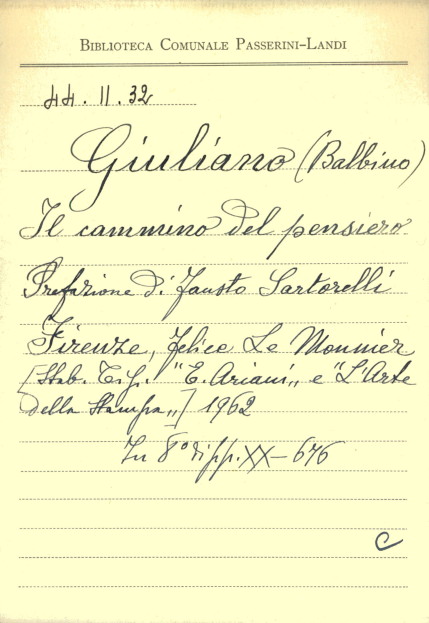 BIBLIOTECA COMUNALE PASSERINI-LANDI
44.11.32
Giuliano (Balbino)
Il cammino del pensiero
Prefazione di Fausto Sartorelli
Firenze, Felice Le Monnier
[Stab. Tip. "E. Ariani„ e "L'Arte
della Stampa„] 1962
In 8° di pp. XX-676
C